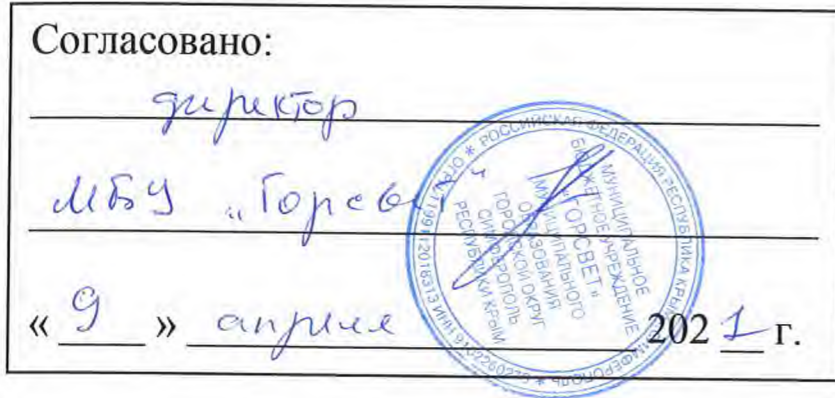 Согласовано:
директор
МБУ „Горсвет"
« 9 » апреля 2021 г.
РОССИЙСКАЯ ФЕДЕРАЦИЯ РЕСПУБЛИКА КРЫМ
СИМФЕРОПОЛЬ
ОГРН
ИНН
МУНИЦИПАЛЬНОЕ
БЮДЖЕТНОЕ УЧРЕЖДЕНИЕ
«ГОРСВЕТ»
МУНИЦИПАЛЬНОГО
ОБРАЗОВАНИЯ
ГОРОДСКОЙ ОКРУГ
СИМФЕРОПОЛЬ
РЕСПУБЛИКИ КРЫМ